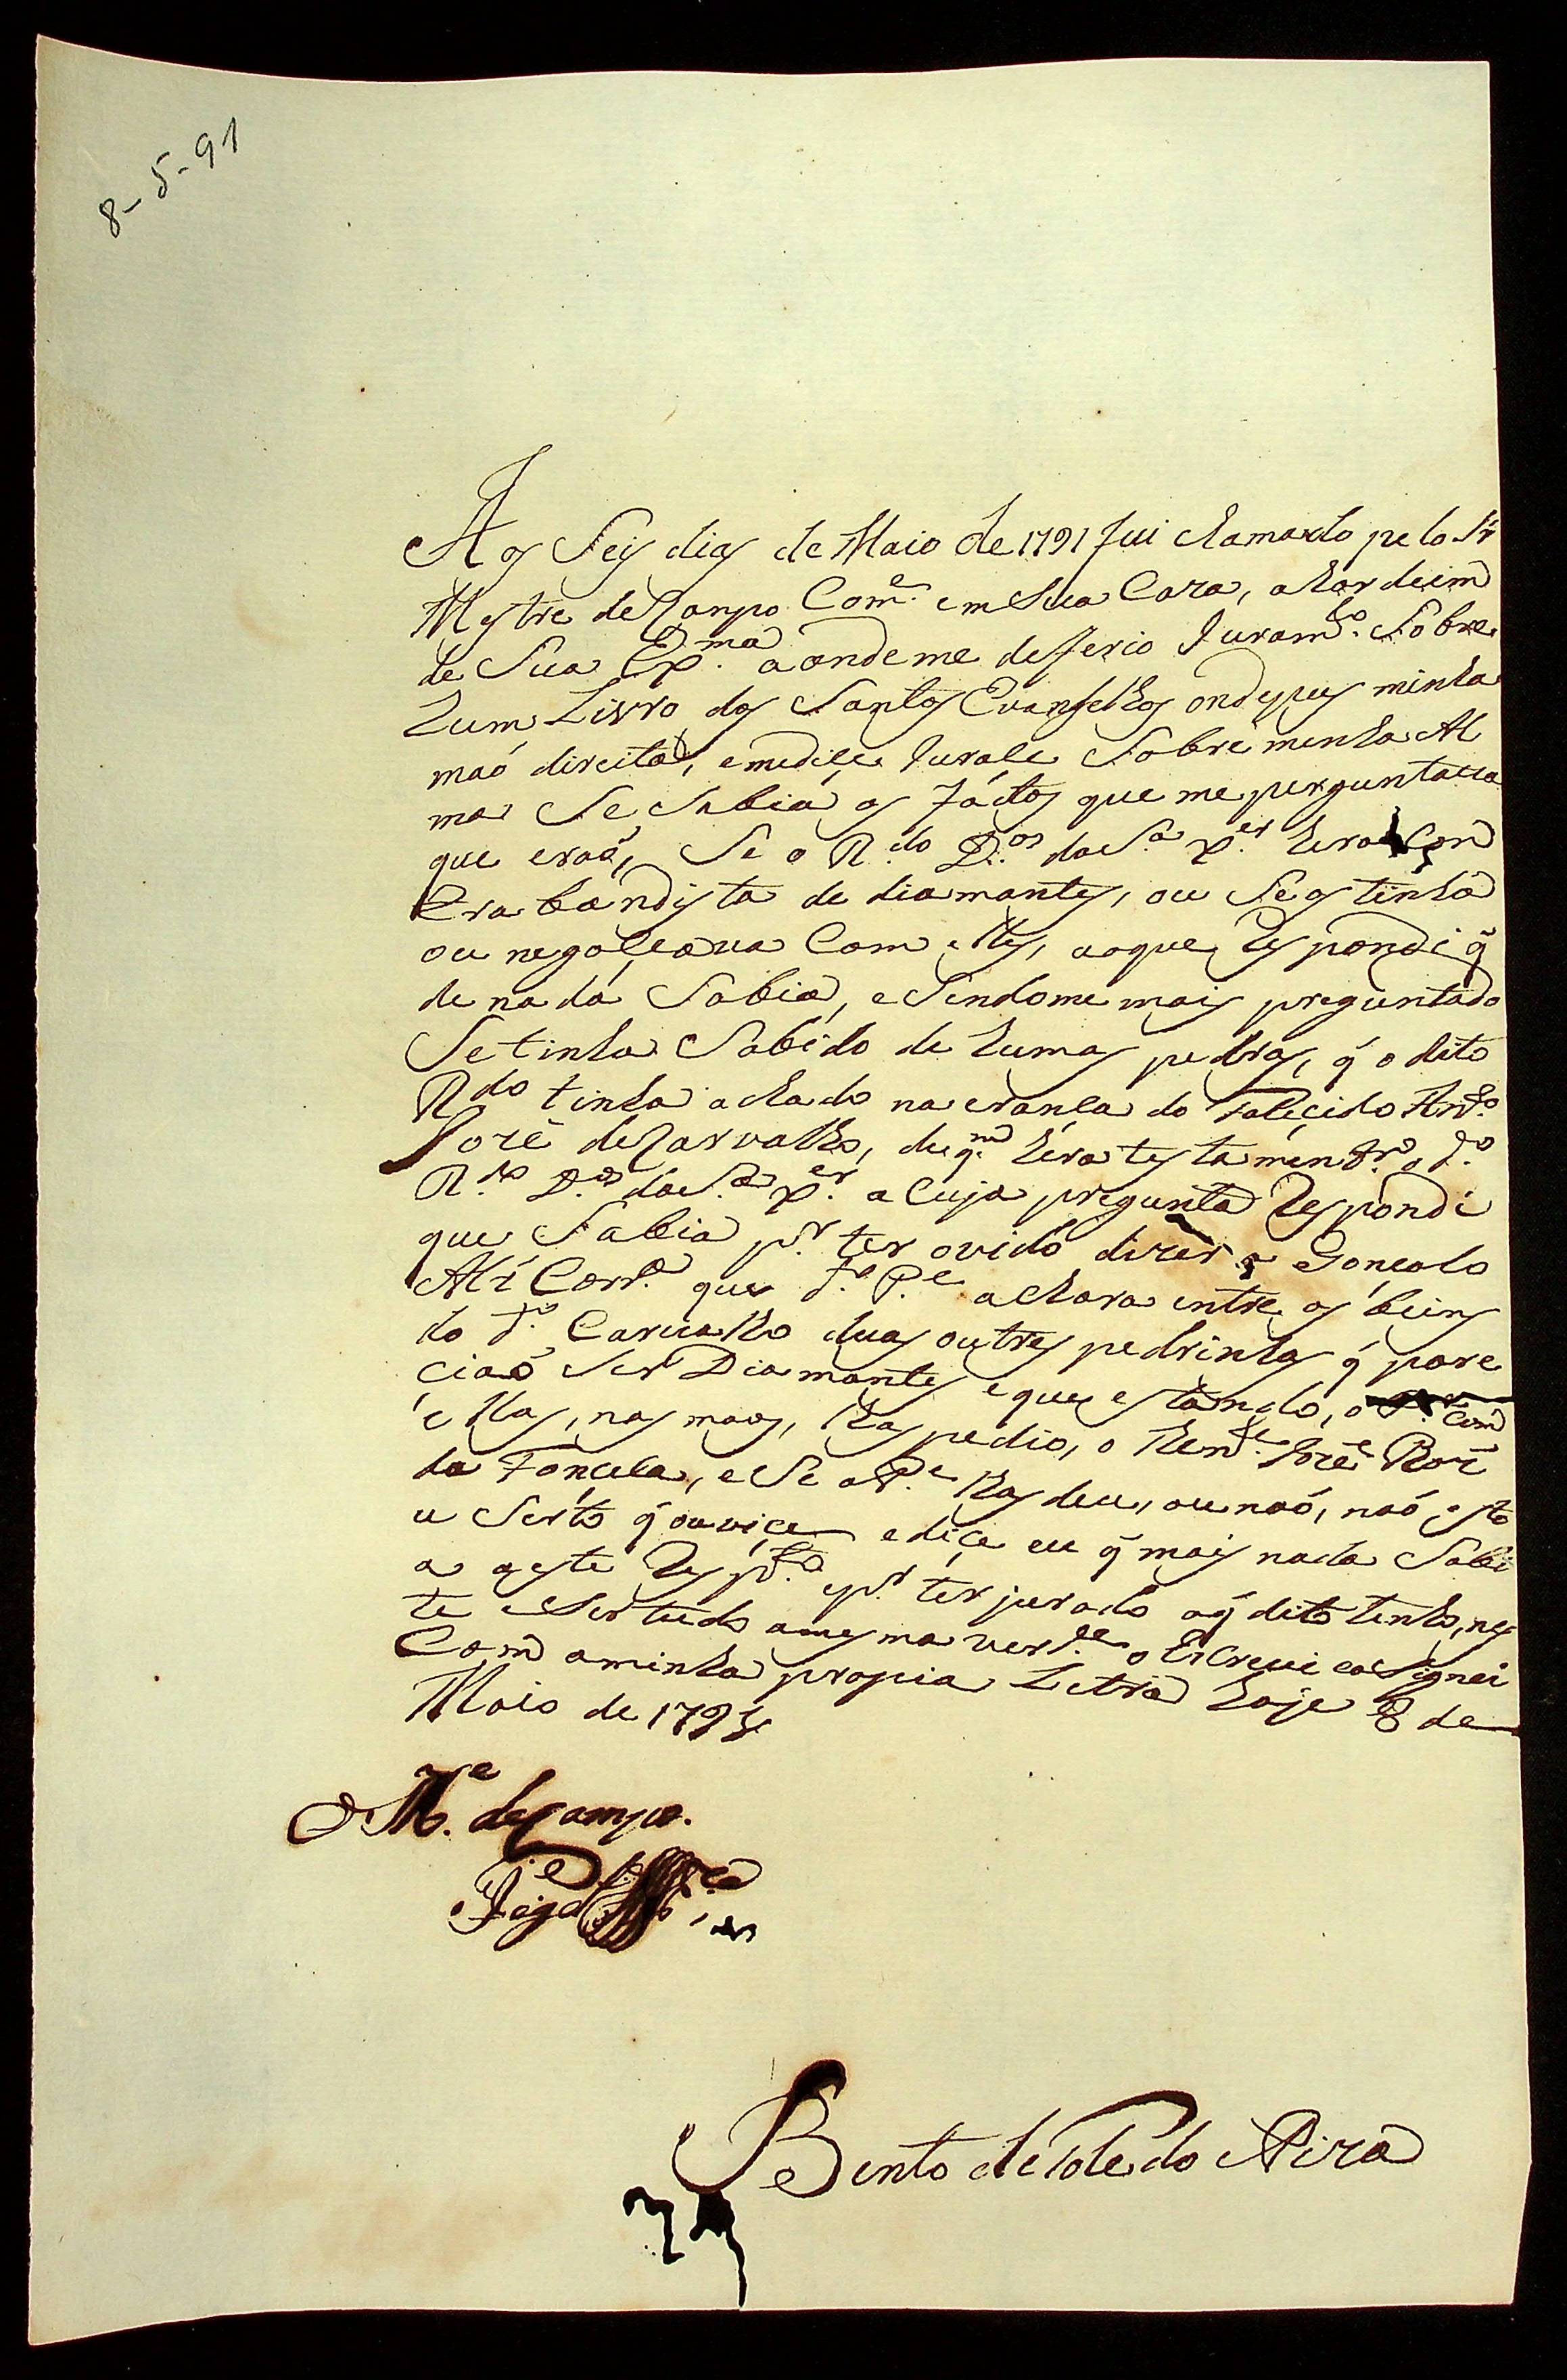 8-5-91
Aos Seis dias de Maio de 1791 fui chamado pelo Sr
Mestre de Campo Com.e em Sua Caza, a hordeim
de Sua Ex.ma aonde me deferio Juram.to Sobre
hum Livro dos Santos Evangelhos onde pus minha
maó direita, e me dice Jurace Sobre minha Al
ma Se Sabia os factos que me perguntava
que eraó, Se o R.do D.os da S.a X.er hera Con
trabandista de diamantes, ou Se os tinha
ou negoceava Com elles, ao que Respondi q̃
de nada Sabia, e Sendome mais preguntado
Se tinha Sabido de humas pedras, q̃ o dito
R.do tinha achado na eranca do Falecido Ant.o
Jozé de Carvalho, de q.m hera testamentr.o o d.o
R.do D.os da S.a X.er a cuja pregunta Respondi
que Sabia p.r ter ovido dizer a Goncalo
Alz Corr.a que d.o P.e achara entre os beins
do d.o Carvalho duas ou tres pedrinhas q̃ pare
ciaó Ser Diamantes e que estando, o Com
ellas, nas maos, lhas pedio, o Jozé Roiz
da Fonceca, e Se o P.e lhas deu, ou naó, naó esto
u Serto q̃ ouvice e dice eu q̃ mais nada Sabi
a a este Resp.to e p.r ter jurado o q̃ dito tenho, nes
te e Ser tudo a mesma verd.e o Escrevi e a Signei
Com a minha propia Letra hoje 8 de
Maio de 1791
O M.e de Campo.
Bento de Toledo Piza